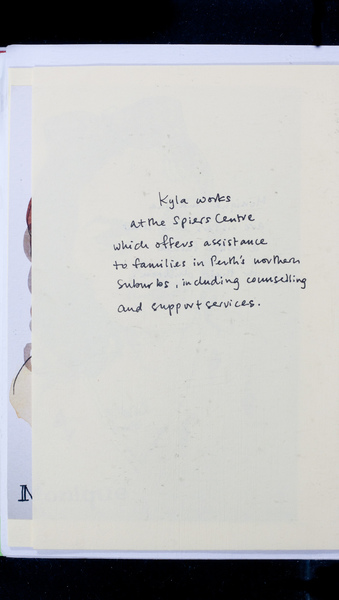 Kyla works
at the Spiers Centre
which offers assistance
to families in Perth's northern
suburbs, including counselling
and support services.
N